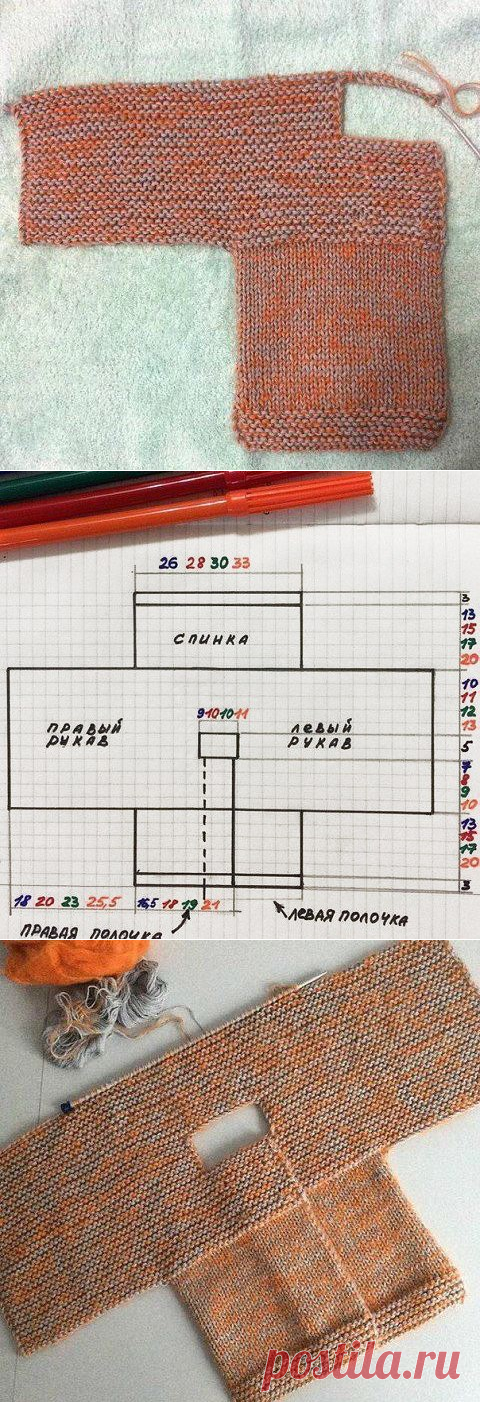 26 28 30 33
3
СПИНКА
13
15
17
20
10
11
12
13
9 10 10 11
ПРАВЫЙ
РУКАВ
ЛЕВЫЙ
РУКАВ
5
7
8
9
10
13
15
17
20
3
18 20 23 25,5 16,5 18 19 21
ПРАВАЯ ПОЛОЧКА
ЛЕВАЯ ПОЛОЧКА
postila.ru